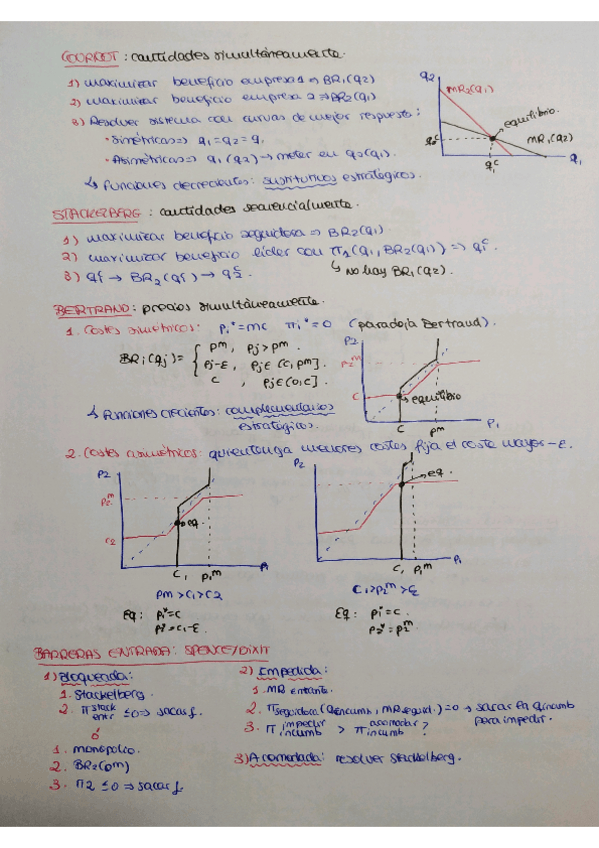 COURNOT : cantidades simultáneamente.
1) maximizar beneficio empresa 1 => BR₁(q₂)
2) maximizar beneficio empresa 2 => BR₂(q₁)
3) Resolver sistema con curvas de mejor respuesta :
· Simétricas => q₁ = q₂ = q.
· Asimétricas => q₁(q₂) → meter en q₂(q₁).
↳ Funciones decrecientes: sustitutivos estratégicos.
q₂
MR₂(q₁)
equilibrio.
MR₁(q₂)
q₂ᶜ
q₁ᶜ
q₁
STACKELBERG : cantidades secuencialmente.
1) maximizar beneficio seguidora => BR₂(q₁)
2) maximizar beneficio líder con π₁(q₁, BR₂(q₁)) =>
↳ No hay BR₁(q₂).
3)
BERTRAND: precios simultáneamente.
1. Costes simétricos: pᵢ* = mc πᵢ* = 0 (paradoja Bertrand).
BRᵢ(qj) = { pᵐ , pj > pm.
pj-ε , pj ∈ (c, pm].
c , pj ∈ (0, c].
↳ Funciones crecientes: complementarios
estratégicos.
p₂
p₂ᵐ
c
equilibrio
c
pm
p₁
2. Costes asimétricos: quien tenga menores costes fija el coste mayor - ε.
p₂
p₂ᵐ
c₂
eq.
c₁
p₁ᵐ
p₁
pm > c₁ > c₂
Eq: p₁* = c
p₂* = c₁-ε
p₂
eq.
c₁
p₁ᵐ
p₁
c₁ > p₂ᵐ > c₂
Eq: p₁* = c.
p₂* = p₂ᵐ
BARRERAS ENTRADA: SPENCE/DIXIT
1) Bloqueada:
1. Stackelberg.
2. π stack entr ≤ 0 => sacar f.
ó
1. monopolio.
2. BR₂(qm)
3. π₂ ≤ 0 => sacar f.
2) Impedida:
1. MR entrante.
2. π seguidora (q incumb, MR seguid.) = 0 → sacar la q incumb
para impedir.
3. π impedir incumb > π acomodar incumb ?
3) Acomodada: resolver Stackelberg.